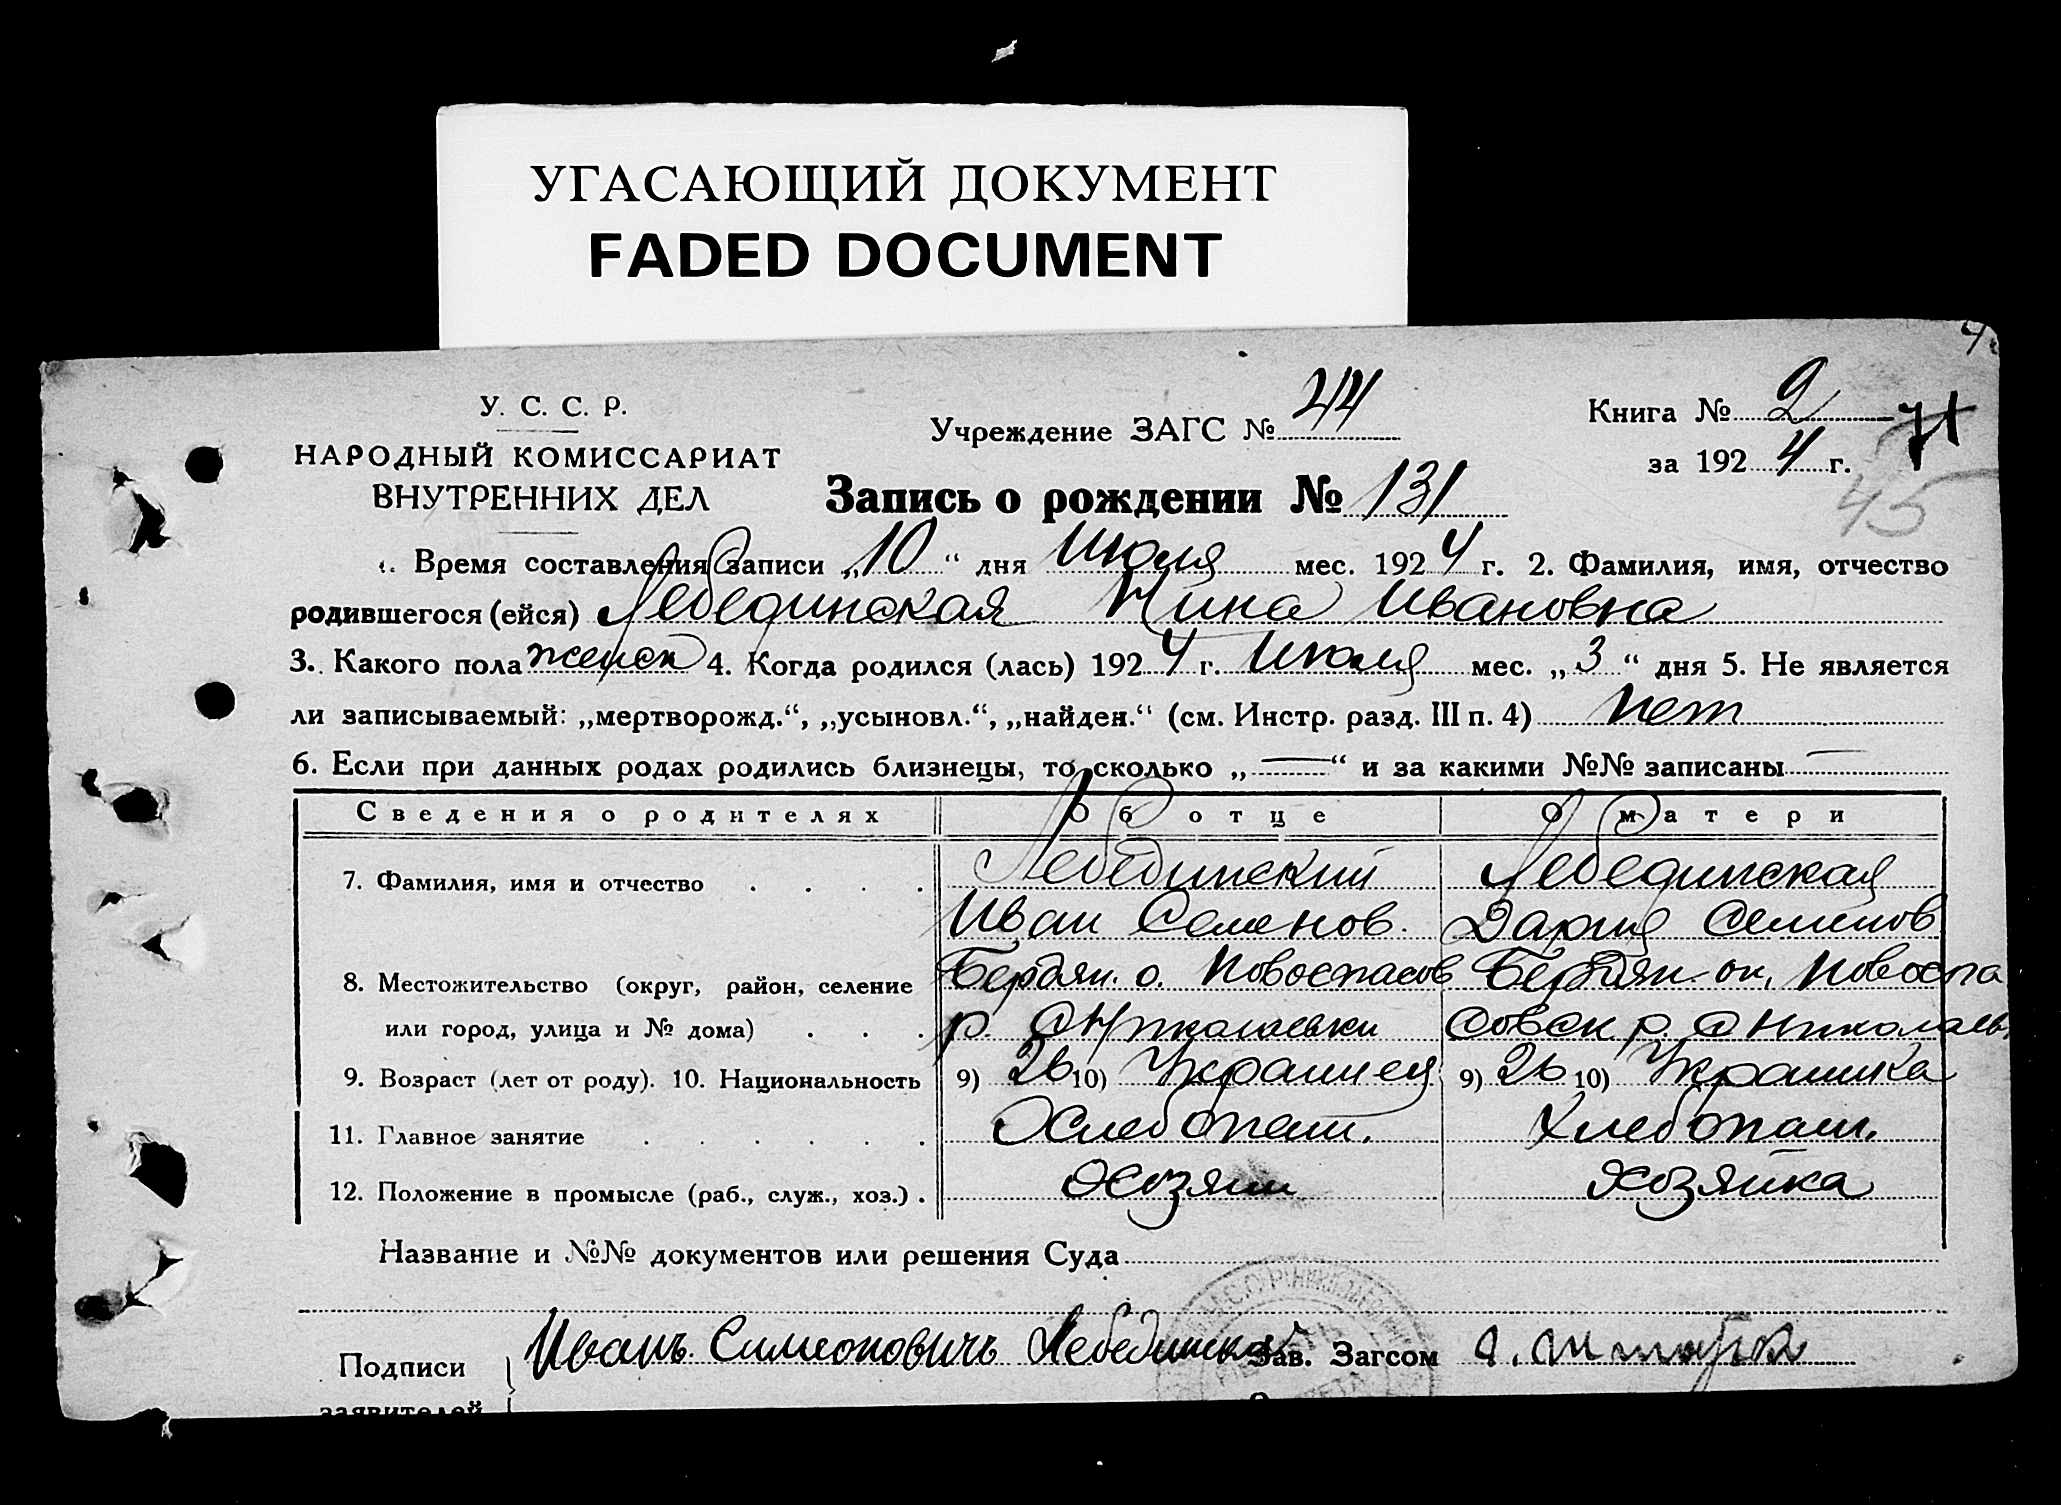 УГАСАЮЩИЙ ДОКУМЕНТ
FADED DOCUMENT
У. С. С. Р.
НАРОДНЫЙ КОМИССАРИАТ
ВНУТРЕННИХ ДЕЛ
Учреждение ЗАГС № 244
Книга № 2
за 1924 г.
71
45
Запись о рождении № 131
1. Время составления записи „10“ дня Июля мес. 1924 г. 2. Фамилия, имя, отчество
родившегося (ейся) Лебединская Нина Ивановна
3. Какого пола женск 4. Когда родился (лась) 1924 г. Июля мес. „3“ дня 5. Не является
ли записываемый: „мертворожд.“, „усыновл.“, „найден.“ (см. Инстр. разд. III п. 4) Нет
6. Если при данных родах родились близнецы, то сколько „—“ и за какими №№ записаны —
Сведения о родителях Об отце О матери
7. Фамилия, имя и отчество . . . . Лебединский Лебединская
Иван Семенов. Дария Семенов
8. Местожительство (округ, район, селение Бердян. о. Новоспасов Бердян. ок. Новоспа
или город, улица и № дома) . . . р. с Николаевки совск р. с Николаев
9. Возраст (лет от роду). 10. Национальность 9) 26 10) Украинец 9) 26 10) Украинка
11. Главное занятие . . . . . . Хлебопаш. Хлебопаш.
12. Положение в промысле (раб., служ., хоз.) . Хозяин Хозяйка
Название и №№ документов или решения Суда
Подписи Иванъ Симеоновичъ Лебединский Зав. Загсом
заявителей